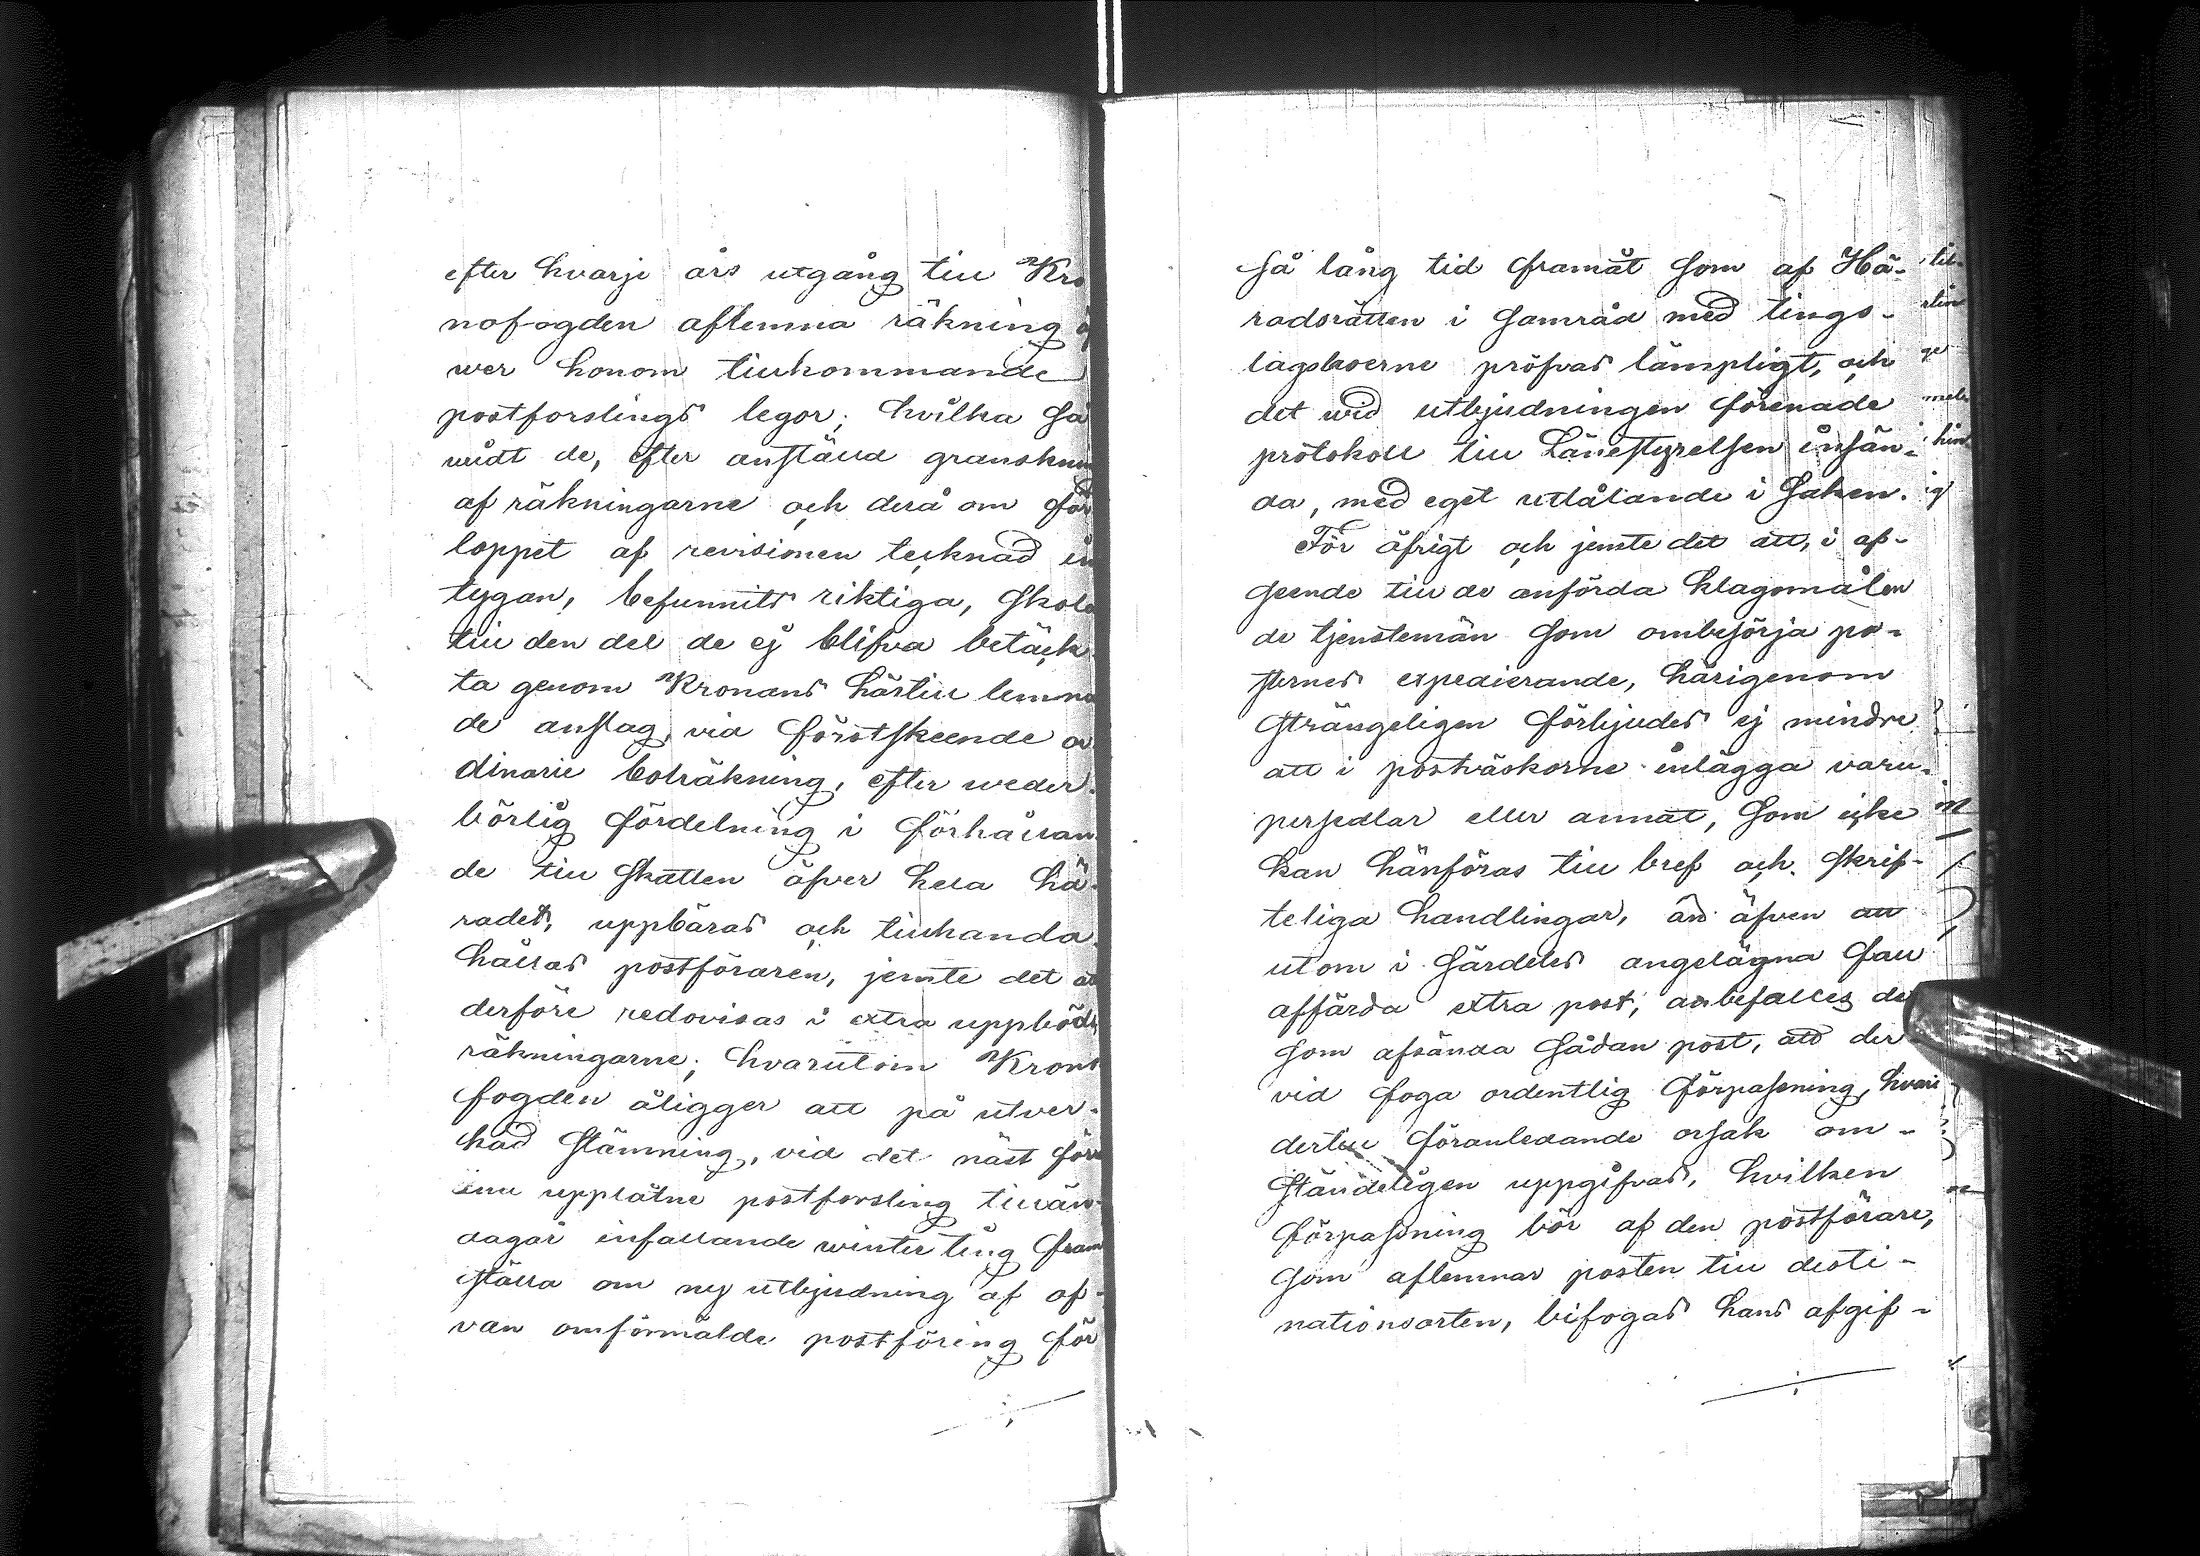 efter hvarje års utgång till Kro
nofogden aflemna räkning ö
wer honom tillkommande
postforslings legor; hvilka så
widt de, efter anstäld gransknin
af räkningarne och derå om för
loppet af revisionen tecknad in
tygan, befunnits riktiga, skola
till den del de ej blifva betäck-
ta genom Kronans härtill lemna
de anslag, vid förstskeende or
dinarie bolräkning, efter weder-
börlig fördelning i förhållan
de till skatten öfver hela hä-
radet, uppbäras och tillhanda-
hållas postföraren, jemte det at
derföre redovisas i extra uppbörds
räkningarne; hvarutom Krono
fogden åligger att på utver-
kad stämning, vid det näst före
inn upplåtne postforsling tillän-
dagår infallande winter ting fram
ställa om ny utbjudning af of-
van omförmälde postföring för
så lång tid framåt som af Hä-
radsrätten i samråd med tings-
lagsboerne pröfvas lämpligt, och
det wid utbjudningen förenade
protokoll till Länestyrelsen insän-
da, med eget utlåtande i saken.
För öfrigt och jemte det att, i af-
seende till de anförda klagomålen
de tjenstemän som ombesörja po-
sternes expedierande, härigenom
strängeligen förbjudes ej mindre
att i postväskorne inlägga varu-
persedlar eller annat, som icke
kan hänföras till bref och skrif-
teliga handlingar, än äfven att
utom i särdeles angelägna fall
affärda extra post; anbefalles de
som afsända sådan post, att der
vid foga ordentlig förpassning, hvari
dertill föranledande orsak om-
ständeligen uppgifvas, hvilken
förpassning bör af den postförare,
som aflemnar posten till desti-
nationsorten, bifogas hans afgif-